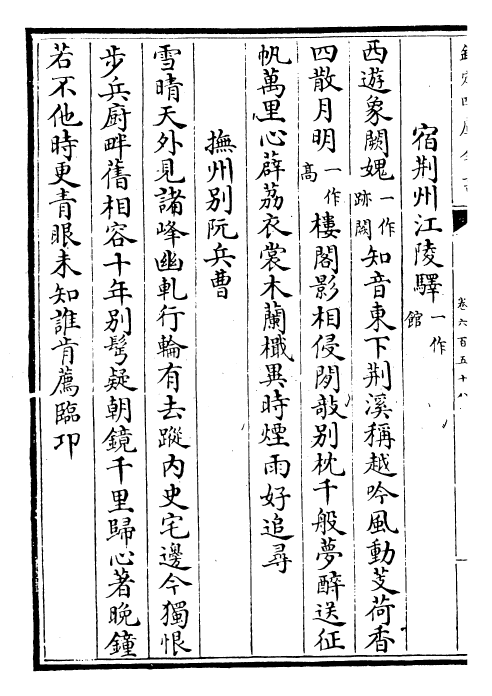 卷六百五十八
宿荆州江陵驛一作館
西遊象闕媿一作跡闕知音東下荆溪稱越吟風動芰荷香
四散月明一作高樓閣影相侵閒敧别枕千般夢醉送征
帆萬里心薜荔衣裳木蘭檝異時煙雨好追尋
撫州别阮兵曹
雪晴天外見諸峰幽軋行輪有去蹤内史宅邊今獨恨
步兵廚畔舊相容十年别鬂疑朝鏡千里歸心著晩鐘
若不他時更青眼未知誰肯薦臨卭